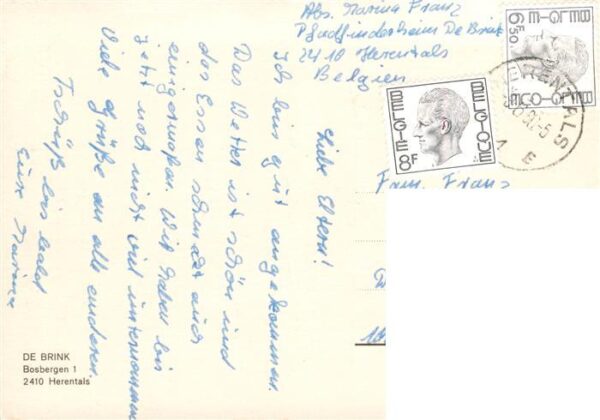 Abs. Marina Franz
Pfadfinderheim De Brink
2410 Herentals
Belgien
BELGIE-BELGIQUE
6F50
BELGIE BELGIQUE
8F
HERENTALS
1 E
Fam. Franz
Liebe Eltern!
Ich bin gut angekommen.
Das Wetter ist schön und
das Essen schmeckt auch
einigermaßen. Wir haben bis
jetzt noch nicht viel unternommen
Viele Grüße an alle anderen.
Tschüß bis bald
Eure Marina
DE BRINK
Bosbergen 1
2410 Herentals